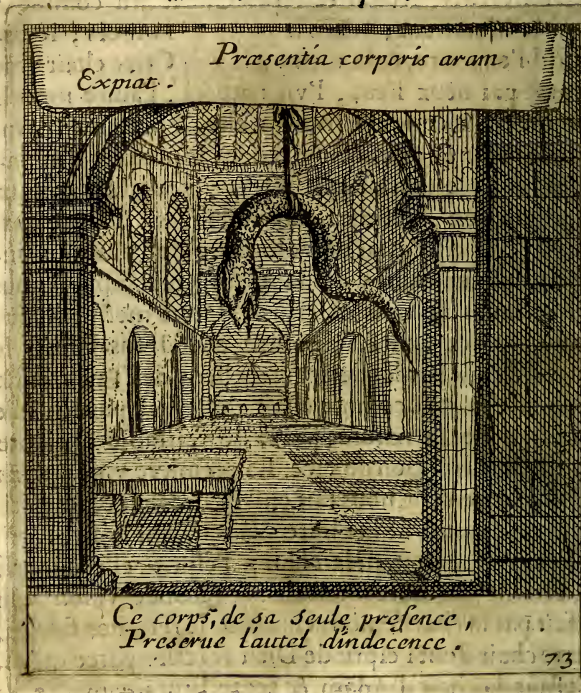 Præsentia corporis aram
Expiat.
Ce corps, de sa seule presence,
Preserue l'autel d'indecence.
73